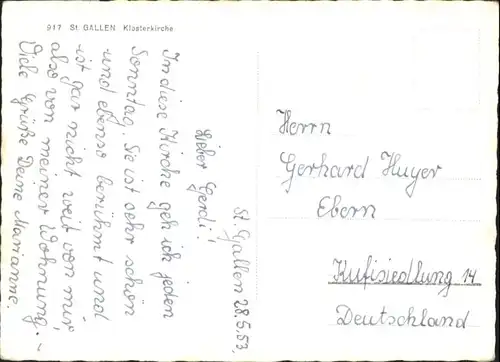 917 St. GALLEN Klosterkirche
St. Gallen 28.5.53.
Lieber Gerdi!
In diese Kirche geh ich jeden
Sonntag. Sie ist sehr schön
und ebenso berühmt und
ist gar nicht weit von mir,
also von meiner Wohnung. –
Viele Grüße Deine Marianne.
Herrn
Gerhard Huyer
Ebern
Kufisiedlung 14
Deutschland